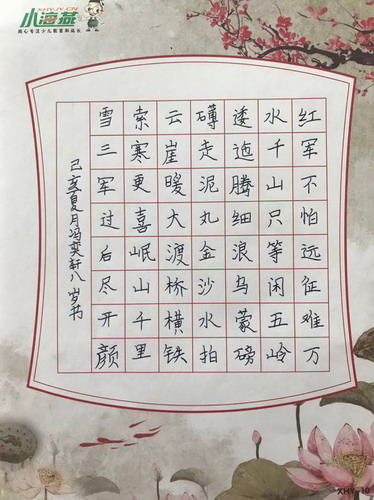 XHYJY.CN
小海燕
红军不怕远征难万
水千山只等闲五岭
逶迤腾细浪乌蒙磅
礴走泥丸金沙水拍
云崖暖大渡桥横铁
索寒更喜岷山千里
雪三军过后尽开颜
己亥夏月冯奕轩八岁书
XHY-10